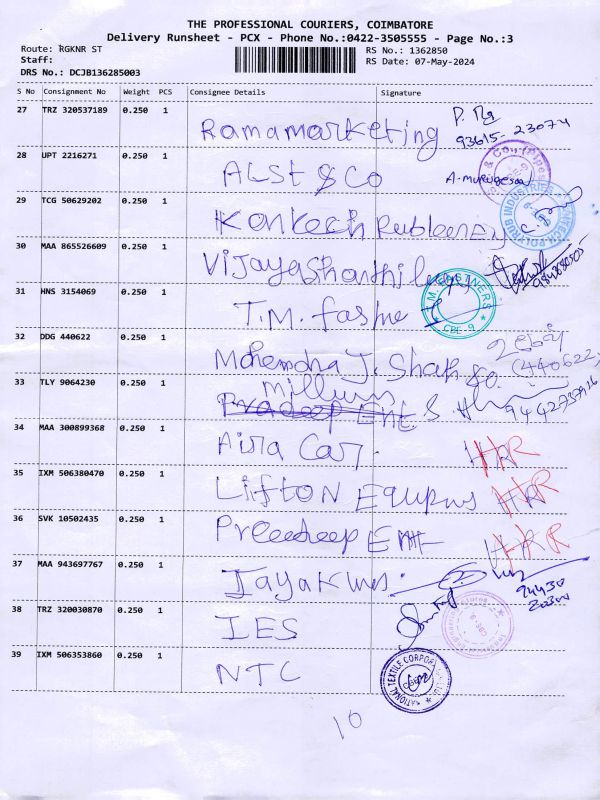 THE PROFESSIONAL COURIERS, COIMBATORE
Delivery Runsheet - PCX - Phone No.:0422-3505555 - Page No.:3
Route: RGKNR ST RS No.: 1362850
Staff: RS Date: 07-May-2024
DRS No.: DCJB136285003
S No Consignment No Weight PCS Consignee Details Signature
27 TRZ 320537189 0.250 1 Ramamarketing
93615-23074
28 UPT 2216271 0.250 1 ALSt & Co A-murugesan
29 TCG 50629202 0.250 1
30 MAA 865526609 0.250 1
31 HNS 3154069 0.250 1 T.M. fashne
CBE-9
32 DDG 440622 0.250 1 Mahendra J. Shah &Co. (440622)
33 TLY 9064230 0.250 1
34 MAA 300899368 0.250 1 Aira Car
35 IXM 506380470 0.250 1 Lifton
36 SVK 10502435 0.250 1
37 MAA 943697767 0.250 1
38 TRZ 320030870 0.250 1 IES
39 IXM 506353860 0.250 1 NTC
NATIONAL TEXTILE CORPORATION
10